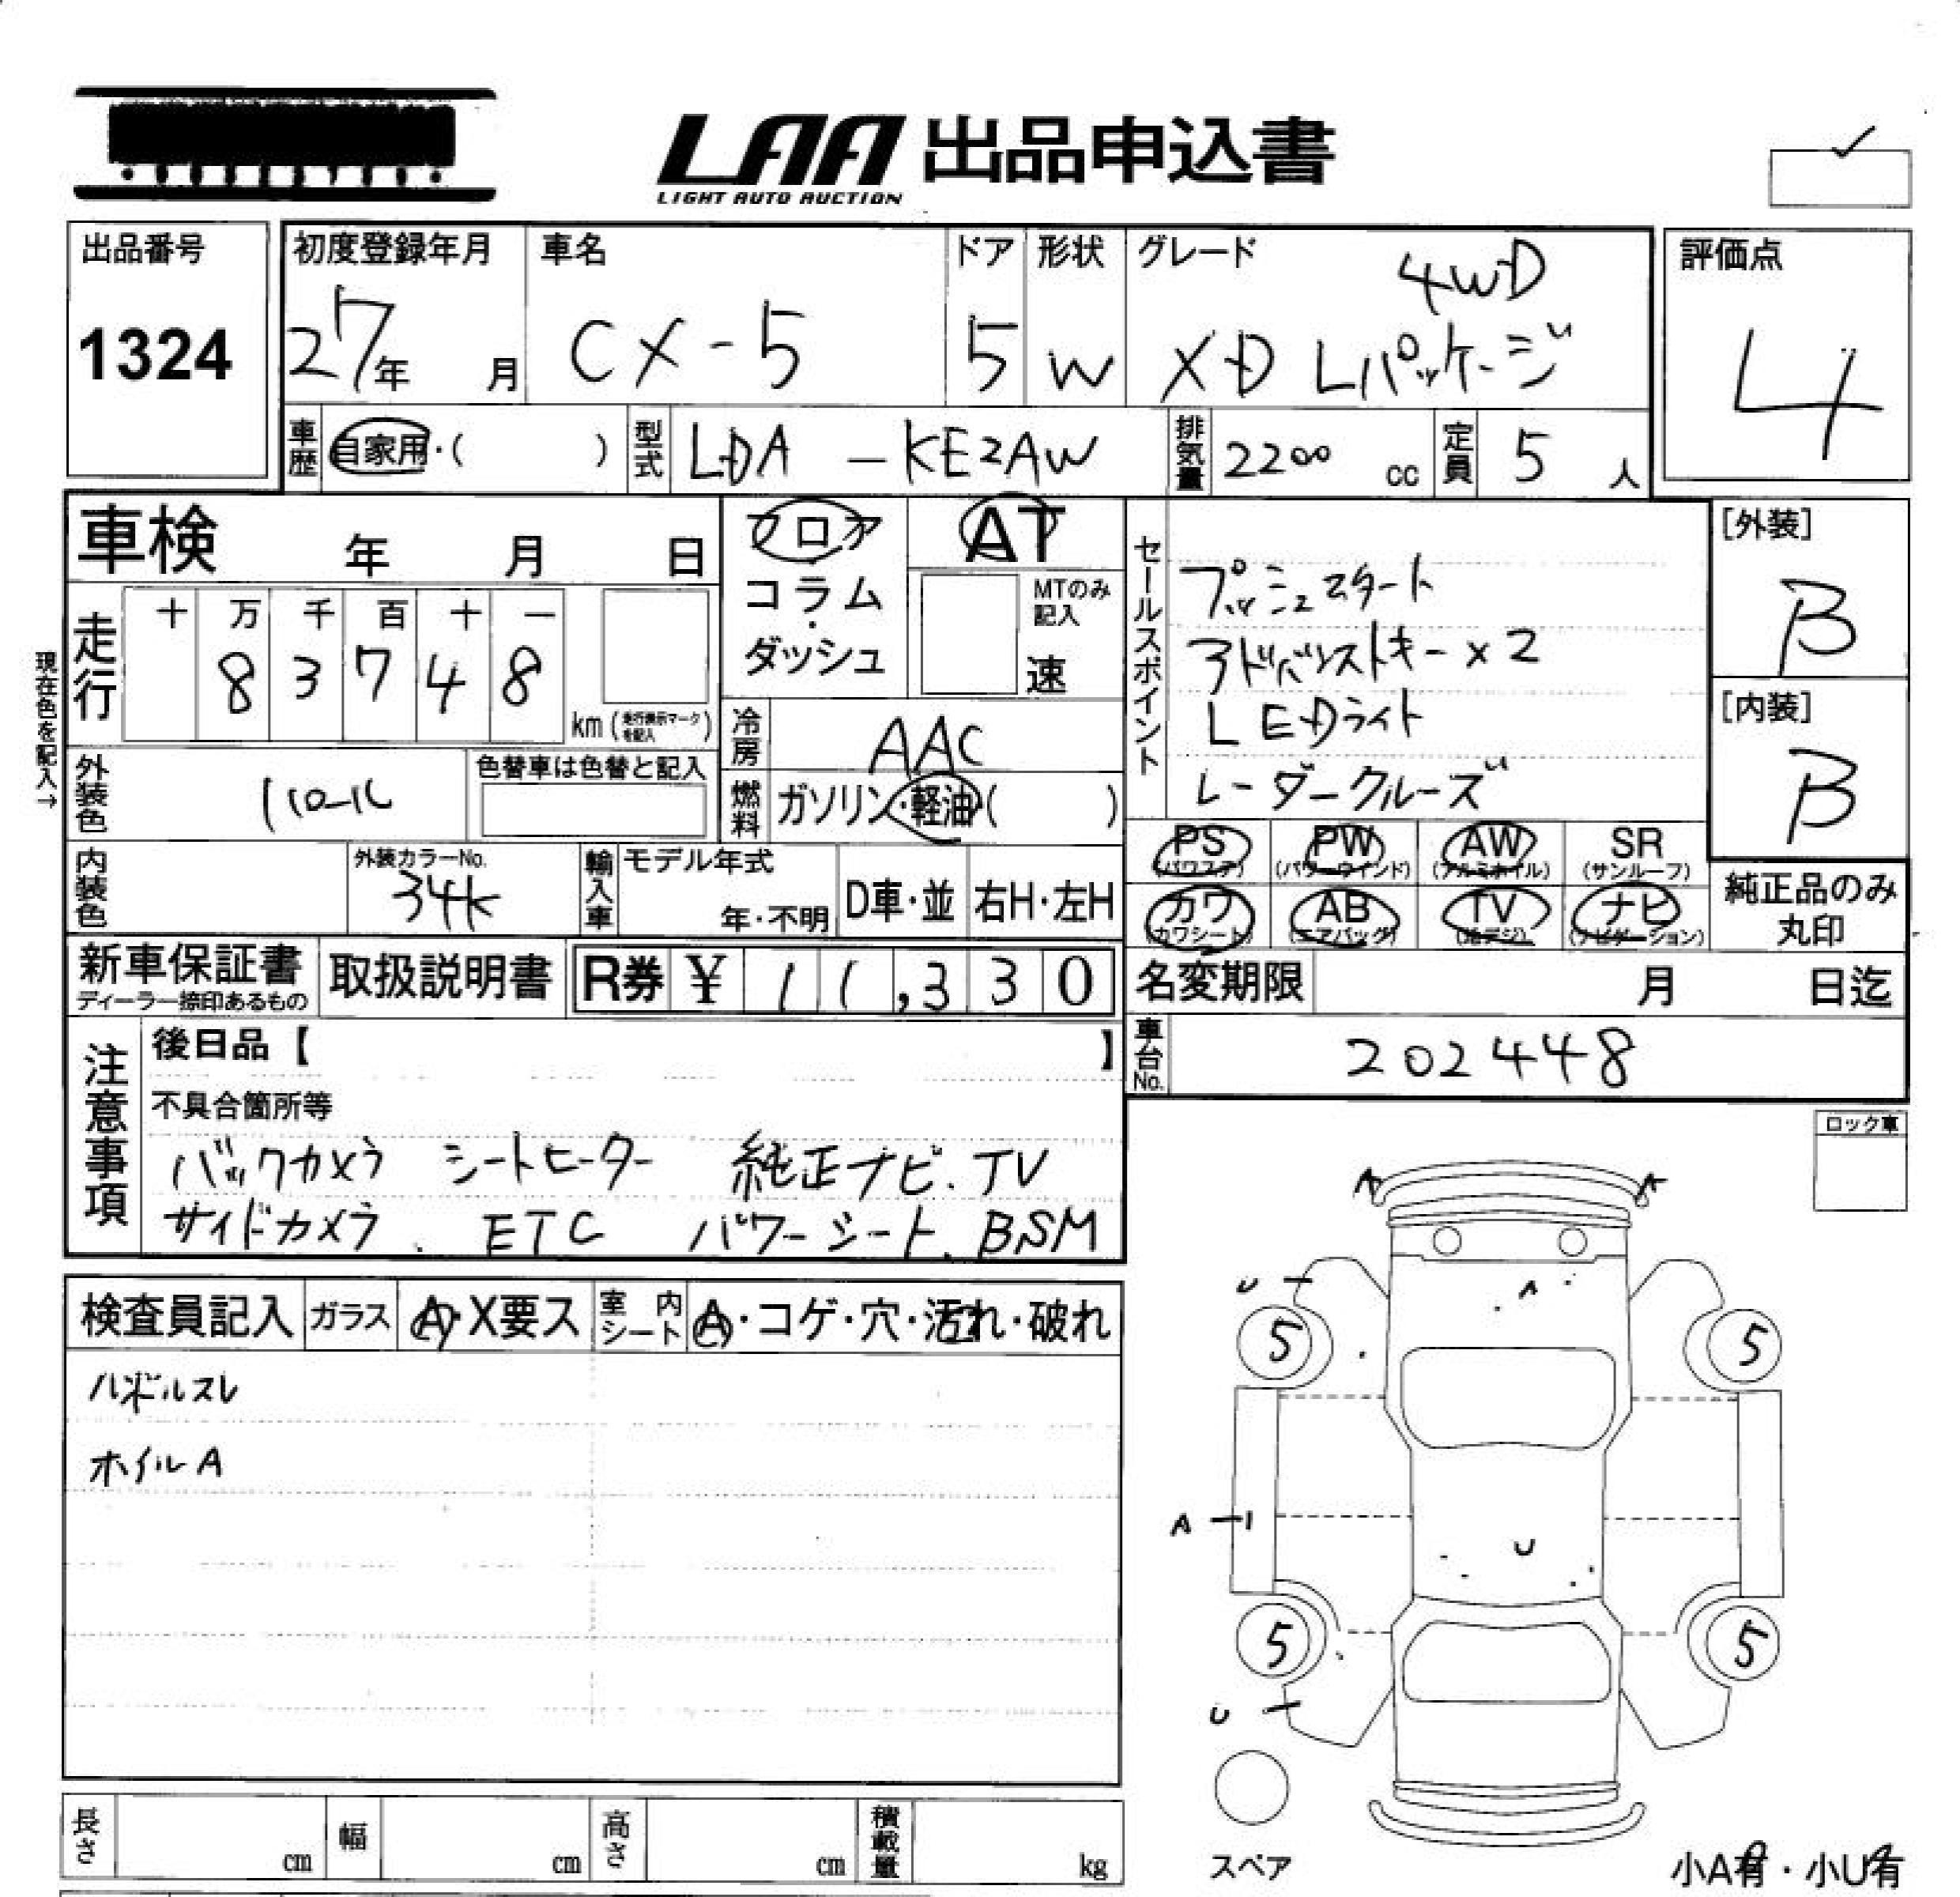 LAA 出品申込書
LIGHT AUTO AUCTION
出品番号
1324
初度登録年月
27年 月
車名
CX-5
ドア
5
形状
W
グレード
4WD
XD Lパッケージ
評価点
4
車歴 自家用・( )
型式 LDA - KE2AW
排気量 2200 cc
定員 5 人
車検 年 月 日
フロア
コラム
・
ダッシュ
AT
MTのみ
記入
速
セールスポイント
プッシュスタート
アドバンストキー×2
LEDライト
レーダークルーズ
[外装]
B
[内装]
B
現在色を記入→
走行
十 万 千 百 十 一
8 3 7 4 8
km (走行表示マークを記入)
冷房 AAC
燃料 ガソリン・軽油・( )
外装色 パール
色替車は色替と記入
内装色
外装カラーNo.
34K
輸入車
モデル年式
年・不明
D車・並
右H・左H
PS (パワステ)
PW (パワーウインド)
AW (アルミホイル)
SR (サンルーフ)
カワ (カワシート)
AB (エアバッグ)
TV (地デジ)
ナビ (ナビゲーション)
純正品のみ
丸印
新車保証書
ディーラー捺印あるもの
取扱説明書
R券 ¥ 11,330
名変期限 月 日迄
車台No. 202448
注意事項
後日品【 】
不具合箇所等
バックカメラ シートヒーター 純正ナビ.TV
サイドカメラ. ETC パワーシート. BSM
ロック車
検査員記入
ガラス A・X要ス
室内シート A・コゲ・穴・汚れ・破れ
ハンドルスレ
ホイルA
A A
U A
5 5
A U
5 5
U
スペア
長さ cm 幅 cm 高さ cm 積載量 kg
小A有・小U有